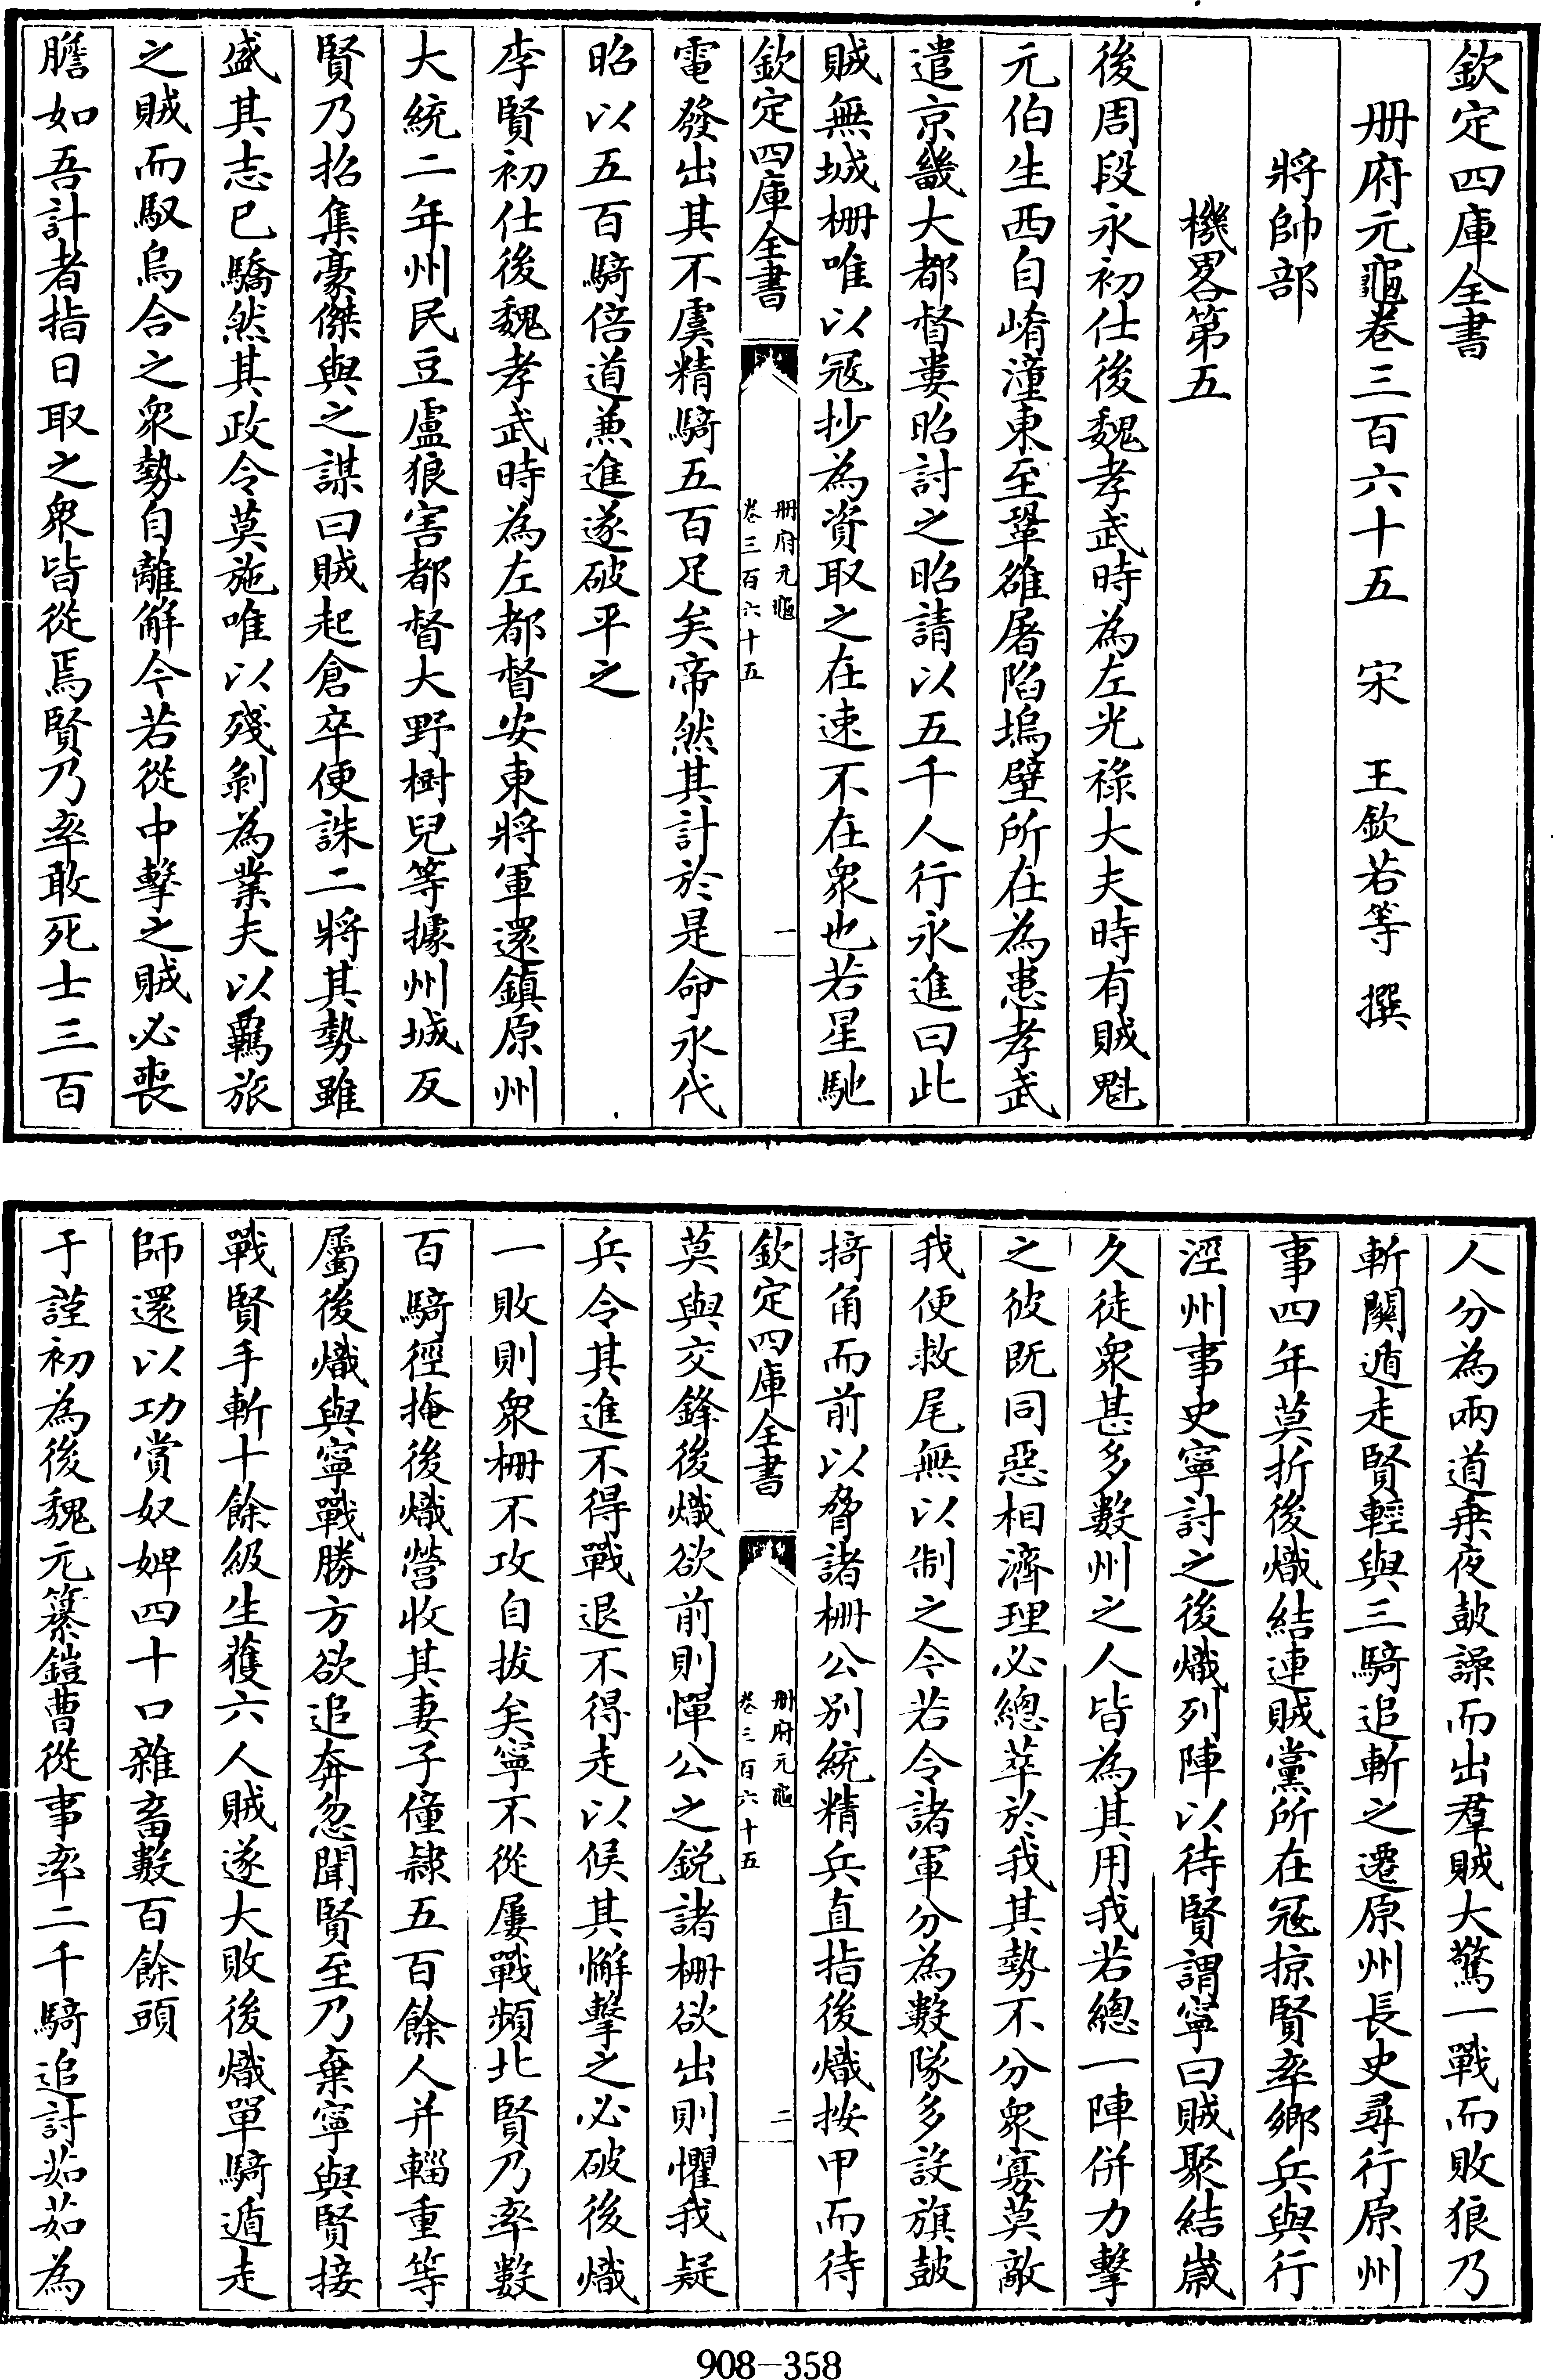 欽定四庫全書
册府元龜卷三百六十五　宋　王欽若等　撰
將帥部
機畧第五
後周段永初仕後魏孝武時為左光祿大夫時有賊魁
元伯生西自崤潼東至鞏雒屠陷塢壁所在為患孝武
遣京畿大都督婁昭討之昭請以五千人行永進曰此
賊無城柵唯以冦抄為資取之在速不在衆也若星馳
欽定四庫全書
册府元龜
卷三百六十五
一
電發出其不虞精騎五百足矣帝然其計於是命永代
昭以五百騎倍道兼進遂破平之
李賢初仕後魏孝武時為左都督安東將軍還鎮原州
大統二年州民豆盧狼害都督大野樹兒等據州城反
賢乃招集豪傑與之謀曰賊起倉卒便誅二將其勢雖
盛其志已驕然其政令莫施唯以殘剝為業夫以羈旅
之賊而馭烏合之衆勢自離解今若從中擊之賊必喪
膽如吾計者指日取之衆皆從焉賢乃率敢死士三百
人分為兩道乗夜鼓譟而出羣賊大驚一戰而敗狼乃
斬關遁走賢輕與三騎追斬之遷原州長史尋行原州
事四年莫折後熾結連賊黨所在冦掠賢率鄉兵與行
涇州事史寧討之後熾列陣以待賢謂寧曰賊聚結歲
久徒衆甚多數州之人皆為其用我若總一陣併力擊
之彼既同惡相濟理必總萃於我其勢不分衆寡莫敵
我便救尾無以制之今若令諸軍分為數隊多設旗鼓
掎角而前以脅諸柵公別統精兵直指後熾按甲而待
欽定四庫全書
册府元龜
卷三百六十五
二
莫與交鋒後熾欲前則憚公之銳諸柵欲出則懼我疑
兵令其進不得戰退不得走以候其懈擊之必破後熾
一敗則衆柵不攻自拔矣寧不從屢戰頻北賢乃率數
百騎徑掩後熾營收其妻子僮隸五百餘人并輜重等
屬後熾與寧戰勝方欲追奔忽聞賢至乃棄寧與賢接
戰賢手斬十餘級生獲六人賊遂大敗後熾單騎遁走
師還以功賞奴婢四十口雜畜數百餘頭
于謹初為後魏元纂鎧曹從事率二千騎追討茹茹為
908-358